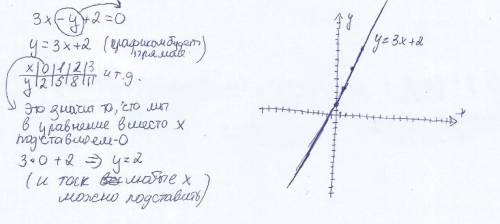 3x-y+2=0
y=3x+2 (графиком будет прямая)
x|0|1|2|3
y|2|5|8|11 и т.д.
Это значит то, что мы
в уравнение вместо x
подставляем-0
3·0+2 ⇒ y=2
(и так любые x
можно подставить)
y
y=3x+2
x